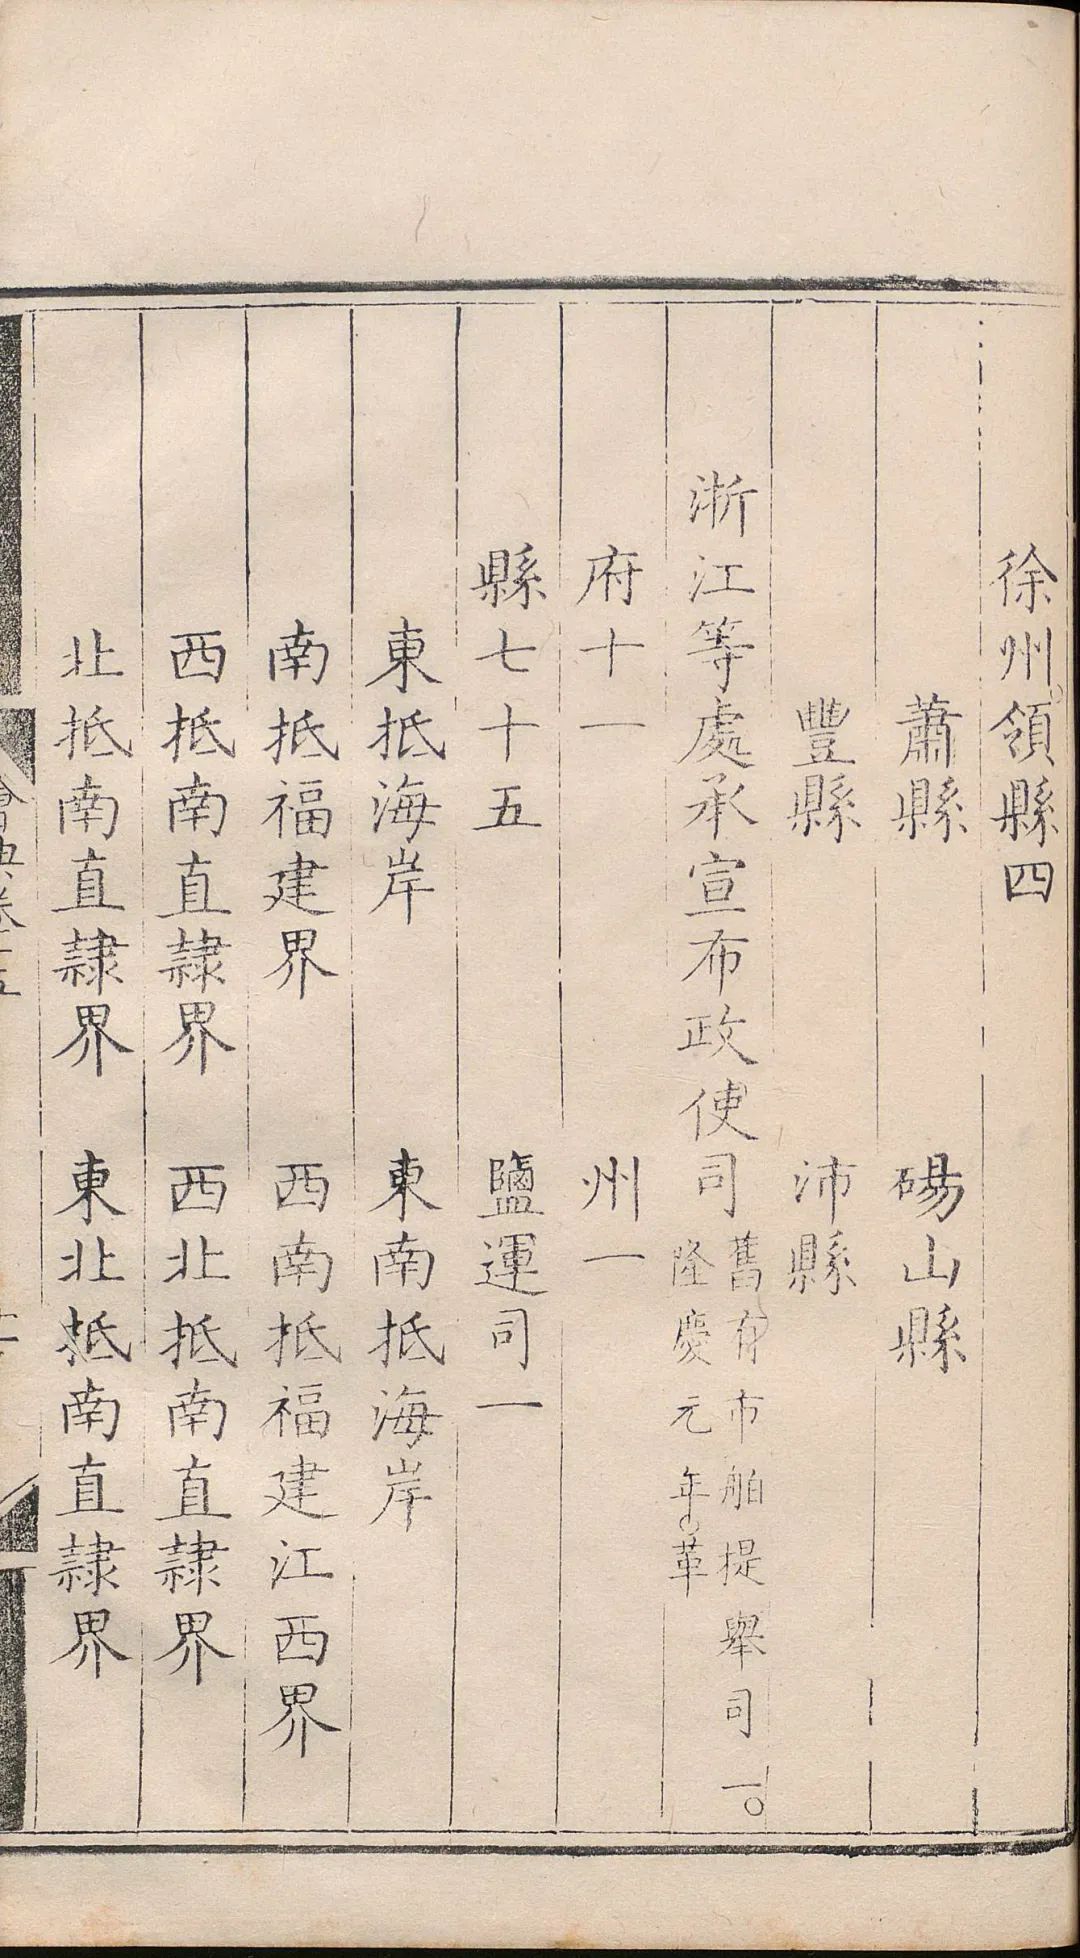 徐州領縣四
蕭縣　碭山縣
豐縣　沛縣
浙江等處承宣布政使司舊有市舶提舉司一○隆慶元年○革
府十一　州一
縣七十五　鹽運司一
東抵海岸　東南抵海岸
南抵福建界　西南抵福建江西界
西抵南直隸界　西北抵南直隸界
北抵南直隸界　東北抵南直隸界